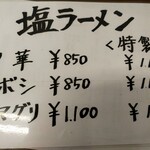 塩ラーメン
<特製
華 ¥850 ¥1
ボシ ¥850 ¥1
マグリ ¥1.100 ¥1